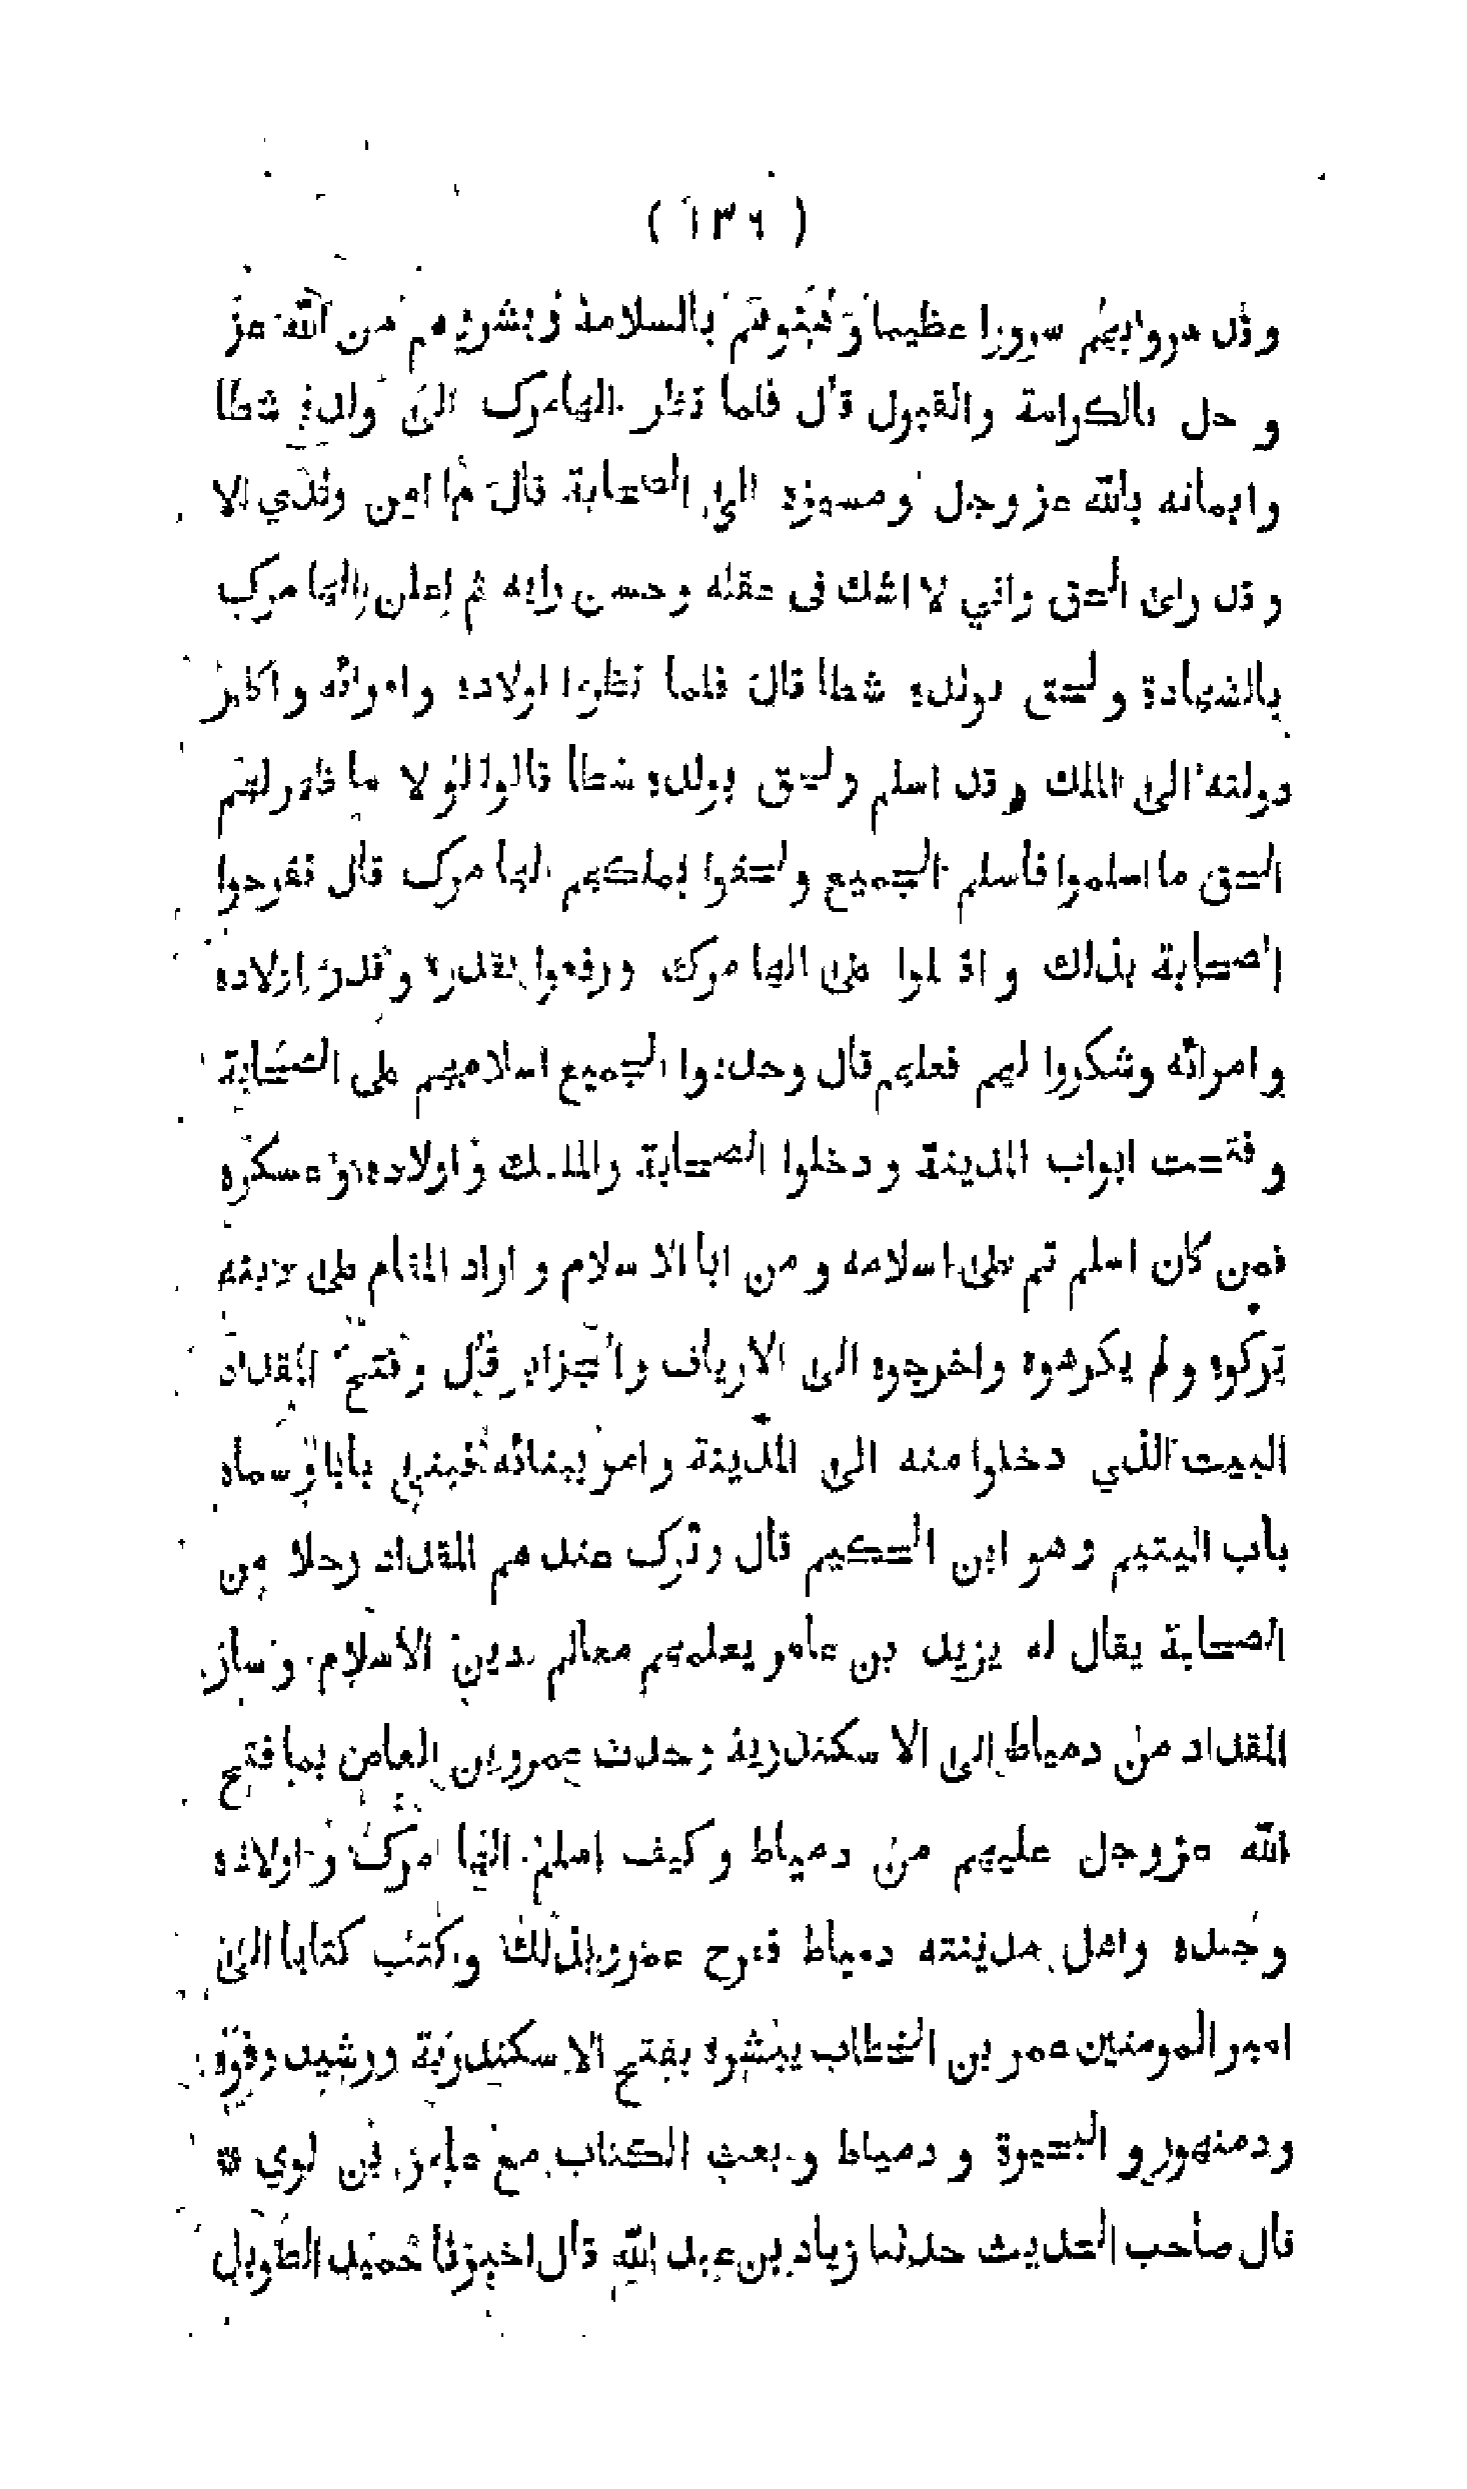 ( ١٣٦ )
وقد سروا بهم سرورا عظيما وهنوهم بالسلامة وبشروهم من الله عز
و جل بالكرامة والقبول قال فلما نظر الهامرك الى ولده شطا
وايمانه بالله عز وجل ومسيره الى الصحابة قال ما امن ولدي الا
وقد راى الحق واني لا اشك فى عقله وحسن رايه ثم اعلن الهامرك
بالشهادة ولحق بولده شطا قال فلما نظروا اولاده وامراته واكابر
دولته الى الملك وقد اسلم ولحق بولده شطا قالوا لو لا ما ظهر لهم
الحق ما اسلموا فاسلم الجميع ولحقوا بملكهم الهامرك قال ففرحوا
الصحابة بذلك واقبلوا على الهامرك ورفعوا بقدره وقدر اولاده
وامراته وشكروا لهم فعلهم قال وجددوا الجميع اسلامهم على الصحابة
وفتحت ابواب المدينة ودخلوا الصحابة والملك واولاده وعسكره
فمن كان اسلم تم على اسلامه ومن ابا الاسلام واراد المقام على دينه
تركوه ولم يكرهوه واخرجوه الى الارياف والجزاير قال وفتح المقداد
البيت الذي دخلوا منه الى المدينة وامر ببنائه فبنى بابا وسماه
باب اليتيم وهو ابن الحكيم قال وترك عندهم المقداد رجلا من
الصحابة يقال له يزيد بن عامر يعلمهم معالم دين الاسلام وسار
المقداد من دمياط الى الاسكندرية وحدث عمرو بن العاص بما فتح
الله عزوجل عليهم من دمياط وكيف اسلم الهامرك واولاده
وجنده واهل مدينته دمياط ففرح عمرو بذلك وكتب كتابا الى
امير المومنين عمر بن الخطاب يبشره بفتح الاسكندرية ورشيد وفوة
ودمنهور و البحيرة و دمياط و بعث الكتاب مع عامر بن لوي *
قال صاحب الحديث حدثنا زياد بن عبد الله قال اخبرنا حميد الطويل